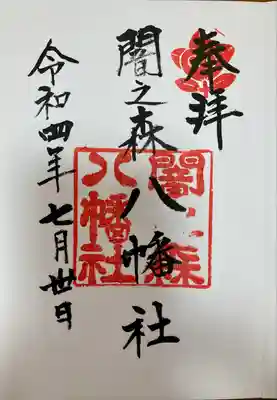 奉拝
闇之森八幡社
令和四年七月丗日
闇森
八幡社